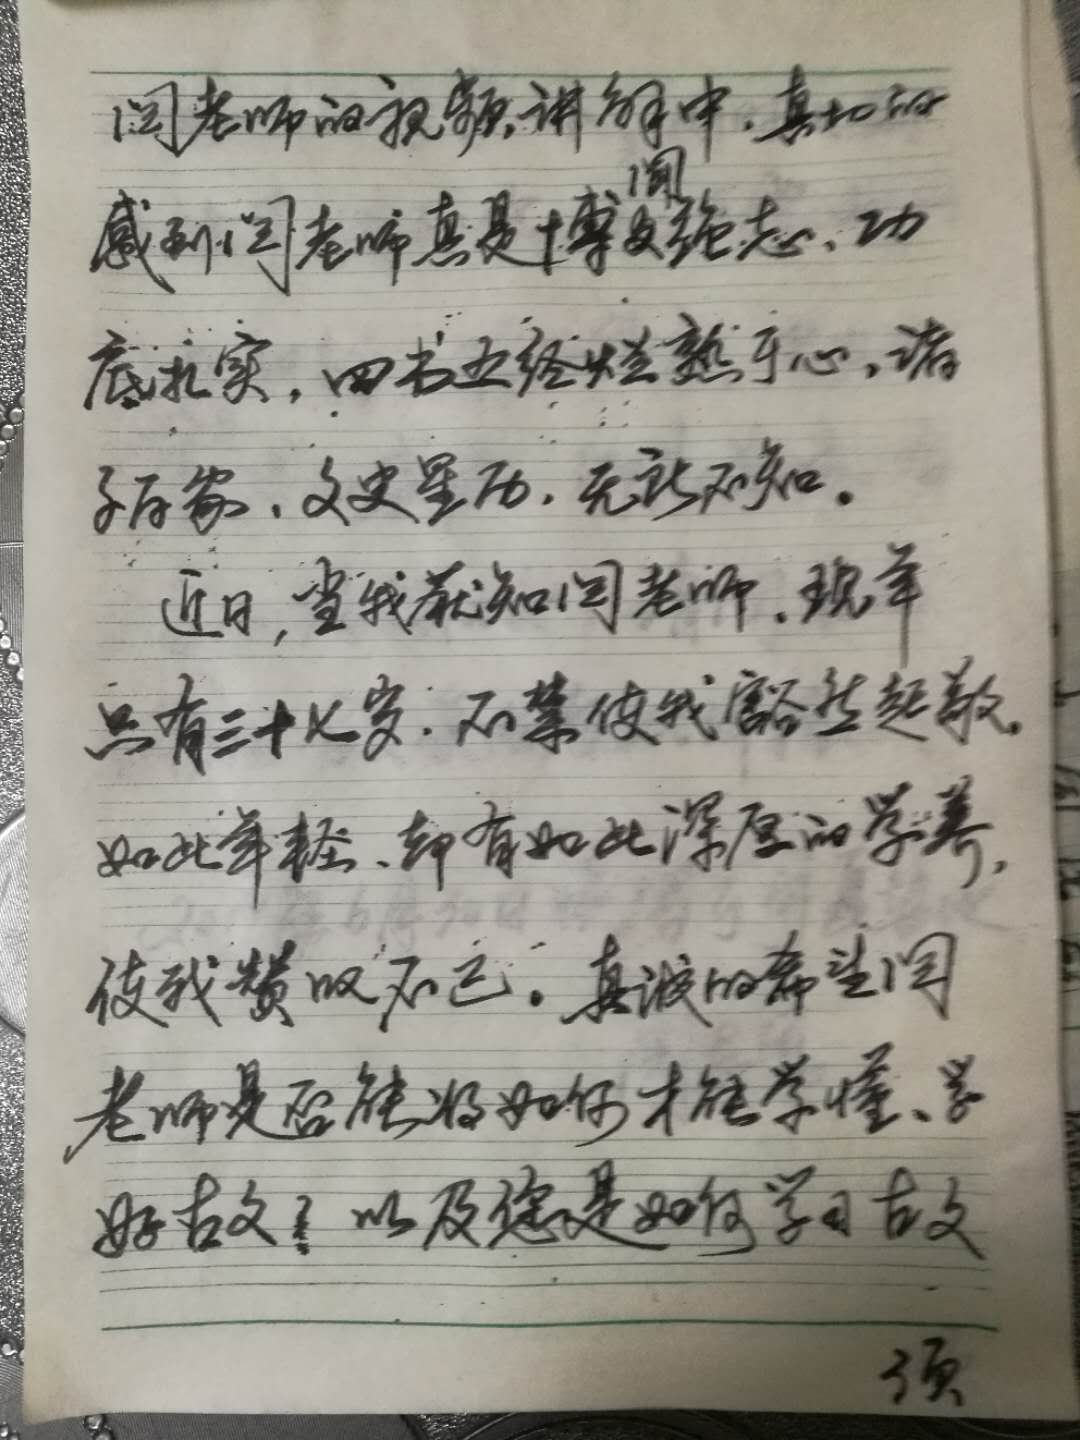 闫老师的视频讲解中，真切的
感到闫老师真是博闻强志、功
底扎实，四书五经烂熟于心，诸
子百家、文史星历，无所不知。
近日，当我获知闫老师，现年
只有三十七岁，不禁使我豁然起敬。
如此年轻、却有如此深厚的学养，
使我赞叹不已。真诚的希望闫
老师是否能将如何才能学懂、学
好古文；以及您是如何学习古文